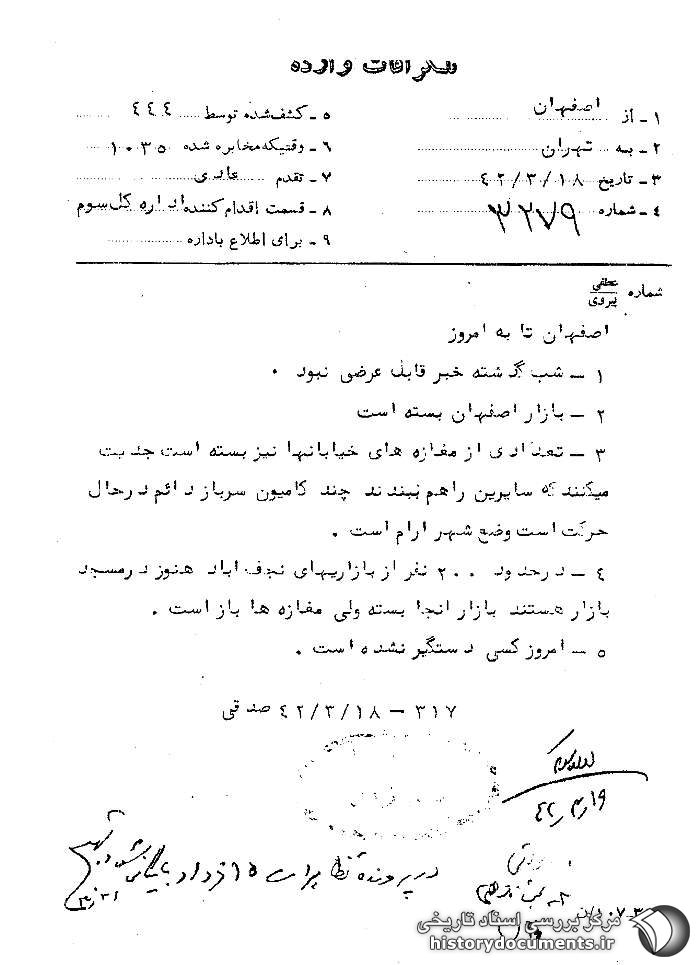 تلگرافات وارده
۱ - از اصفهان
۲ - به تهران
۳ - تاریخ ۴۲/۳/۱۸
۴ - شماره ۳۲۷۹
۵ - کشف شده توسط ۴۴۴
۶ - وقتیکه مخابره شده ۱۰۳۵
۷ - تقدم عادی
۸ - قسمت اقدام کننده اداره کل سوم
۹ - برای اطلاع باداره
شماره عطفی
پیروی
اصفهان تا به امروز
۱ – شب گذشته خبر قابل عرضی نبود .
۲ – بازار اصفهان بسته است
۳ – تعدادی از مغازه های خیابانها نیز بسته است جدیت
میکنند که سایرین راهم نبندند چند کامیون سرباز دائم درحال
حرکت است وضع شهر ارام است .
۴ – درحدود ۲۰۰ نفر از بازاریهای نجف اباد هنوز درمسجد
بازار هستند بازار انجا بسته ولی مغازه ها باز است .
۵ – امروز کسی دستگیر نشده است .
۳۱۷ – ۴۲/۳/۱۸ صدقی
۴۲/۳/۱۹
در پرونده تظاهرات ۱۵ خرداد بایگانی شود
مرکز بررسی اسناد تاریخی
historydocuments.ir